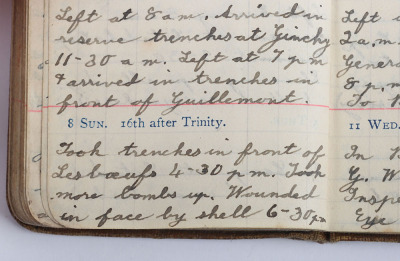 Left at 8 am. Arrived in
reserve trenches at Ginchy
11-30 a m. Left at 7 p m
& arrived in trenches in
front of Guillemont.
8 SUN. 16th after Trinity.
Took trenches in front of
Lesbœufs 4-30 pm. Took
more bombs up. Wounded
in face by shell 6-30 pm
Left
2 a.m.
Genera
8 p.m.
To
11 WED.
In
G. W
Inspe
Eye